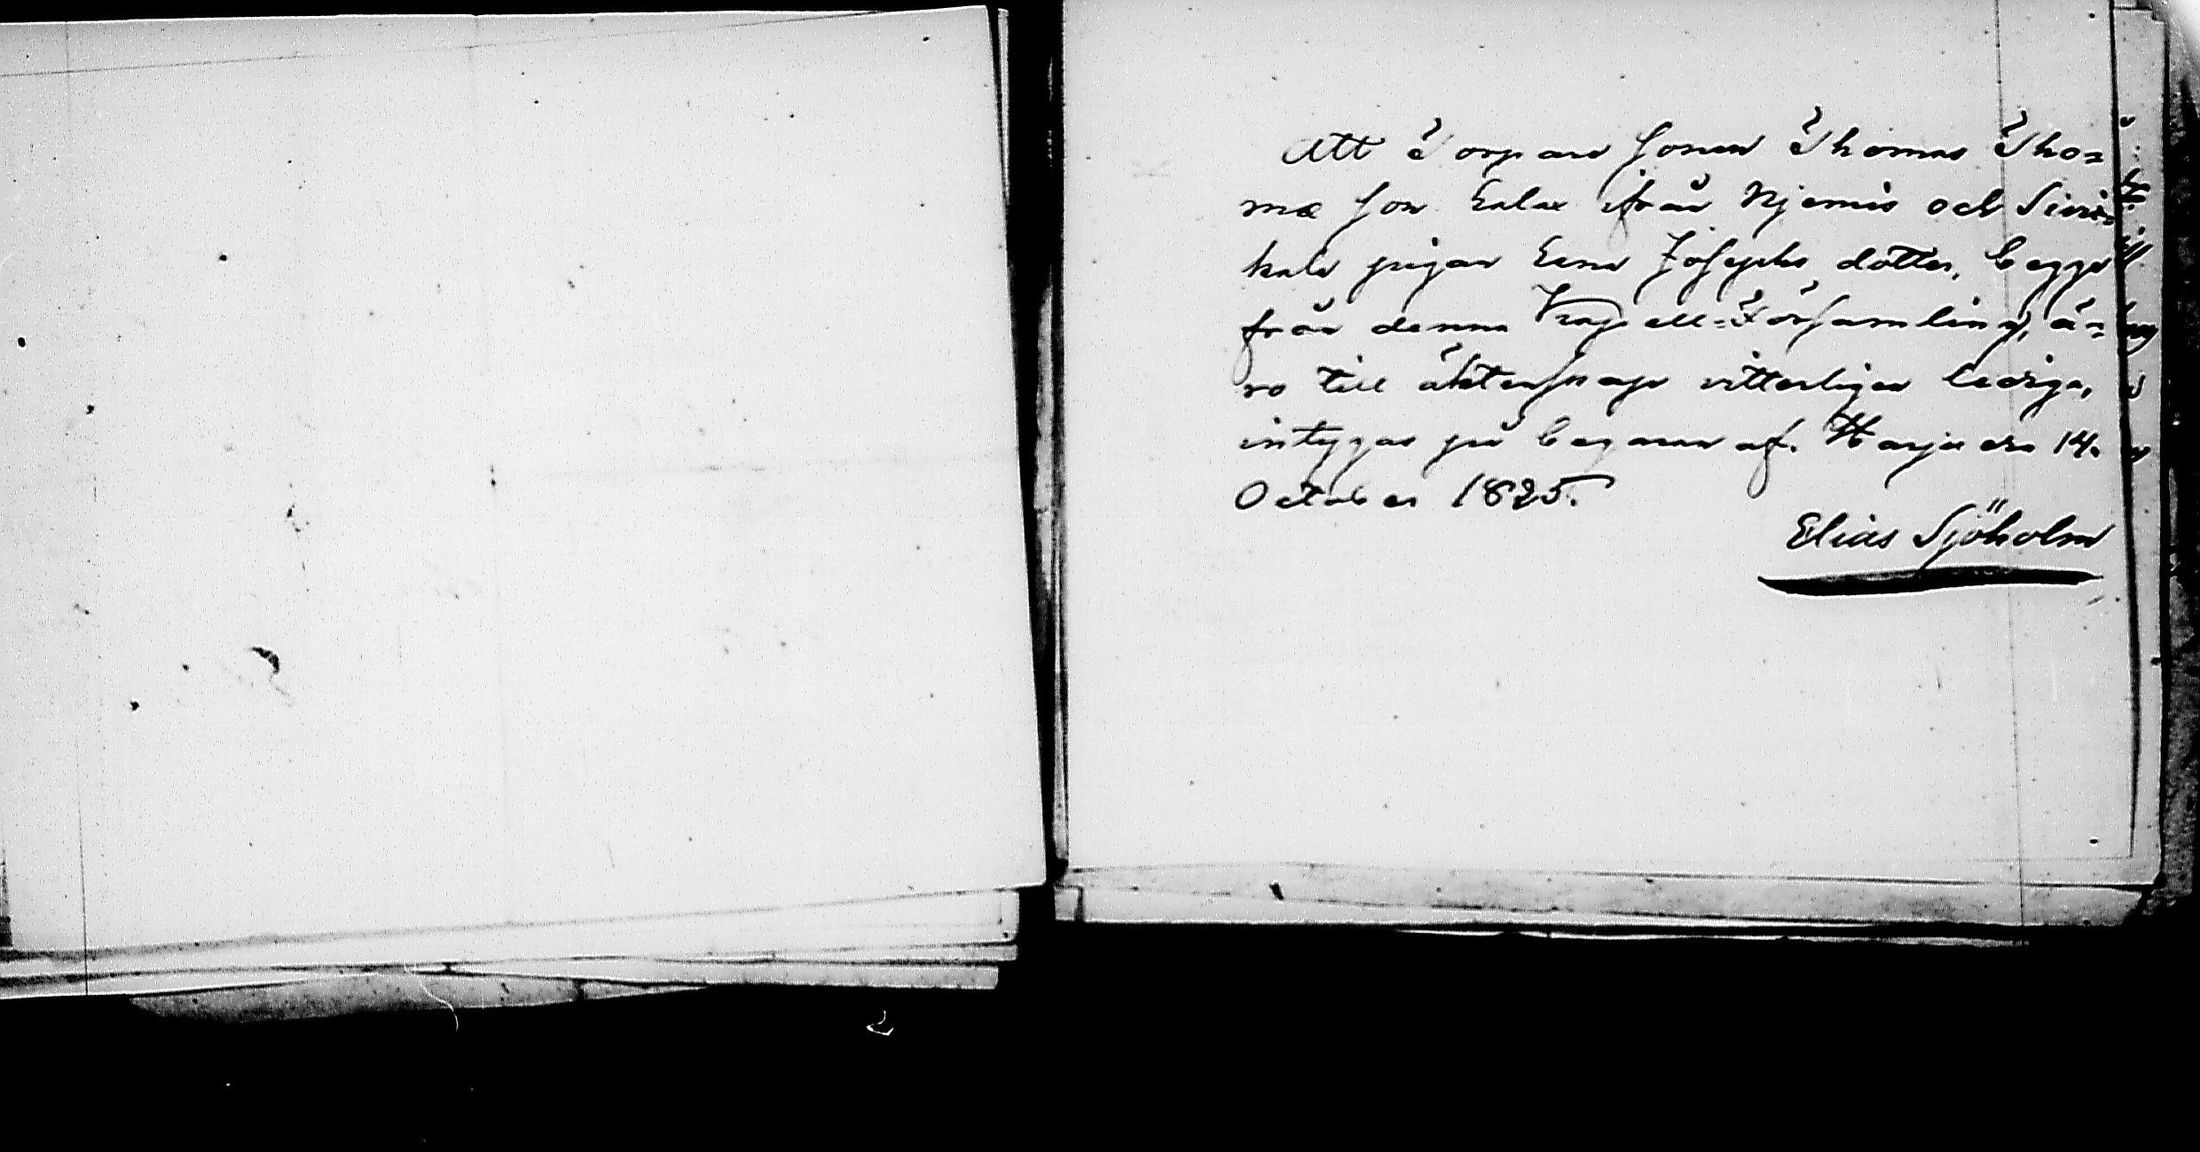 Att Torpare sonen Thomas Tho=
mæ son Salax ifrån Njemis och Sivis=
kals pigan Lena Josephs dotter, begge
från denna Kapell=Församling, ä=
ro till äktenskap vitterligen lediga,
intygas på begäran af. Harju den 14.
October 1825.
Elias Sjöholm